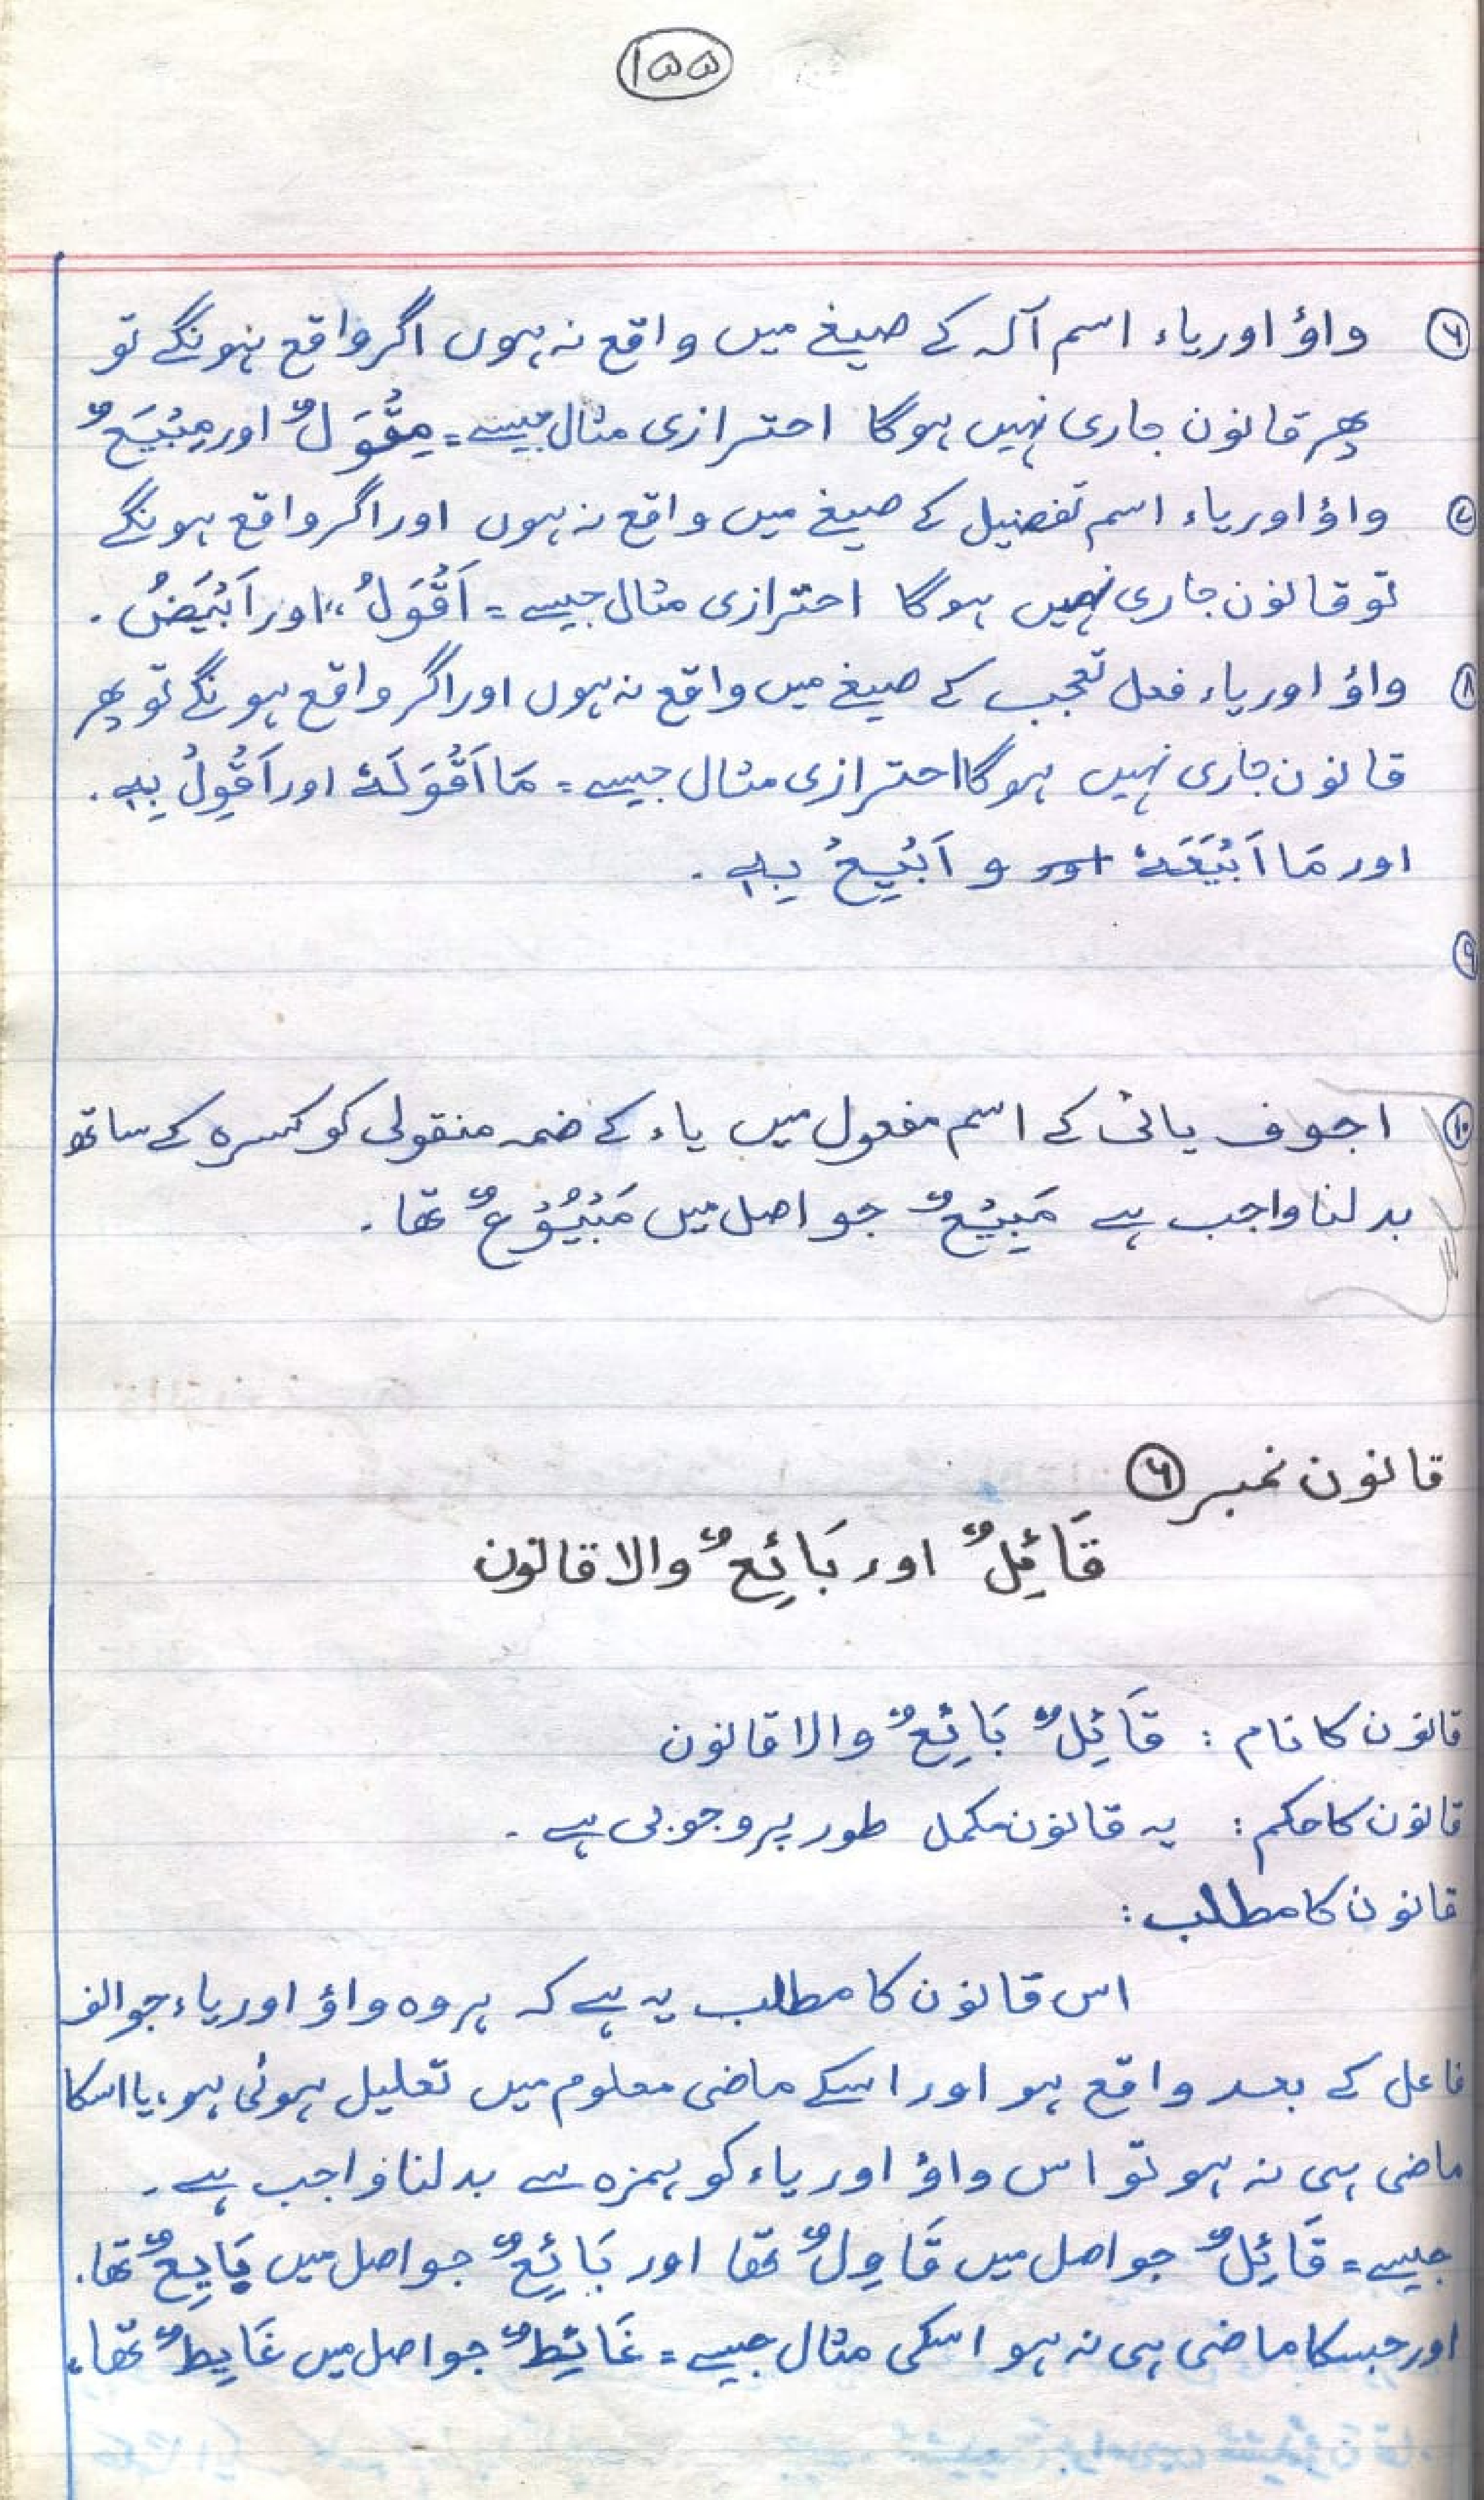 ۱۵۵
۶ واؤ اور یاء اسم آلہ کے صیغے میں واقع نہ ہوں اگر واقع ہونگے تو
پھر قانون جاری نہیں ہوگا احترازی مثال جیسے = مِقْوَلٌ اور مِبْیَعٌ
۷ واؤ اور یاء اسم تفضیل کے صیغے میں واقع نہ ہوں اور اگر واقع ہونگے
تو قانون جاری نہیں ہوگا احترازی مثال جیسے = اَقْوَلُ،، اور اَبْیَضُ .
۸ واؤ اور یاء فعل تعجب کے صیغے میں واقع نہ ہوں اور اگر واقع ہونگے تو پھر
قانون جاری نہیں ہوگا احترازی مثال جیسے = مَا اَقْوَلَهٗ اور اَقْوِلْ بِهٖ .
اور مَا اَبْیَعَهٗ و اَبْیِعْ بِهٖ .
۹
۱۰ اجوف یائی کے اسم مفعول میں یاء کے ضمہ منقولی کو کسرہ کے ساتھ
بدلنا واجب ہے مَبِیْعٌ جو اصل میں مَبْیُوْعٌ تھا .
قانون نمبر ۶
قَائِلٌ اور بَائِعٌ والا قانون
قانون کا نام : قَائِلٌ بَائِعٌ والا قانون
قانون کا حکم : یہ قانون مکمل طور پر وجوبی ہے .
قانون کا مطلب :
اس قانون کا مطلب یہ ہے کہ ہر وہ واؤ اور یاء جو الف
فاعل کے بعد واقع ہو اور اسکے ماضی معلوم میں تعلیل ہوئی ہو، یا اسکا
ماضی ہی نہ ہو تو اس واؤ اور یاء کو ہمزہ سے بدلنا واجب ہے .
جیسے = قَائِلٌ جو اصل میں قَاوِلٌ تھا اور بَائِعٌ جو اصل میں بَایِعٌ تھا .
اور جسکا ماضی ہی نہ ہو اسکی مثال جیسے = غَائِطٌ جو اصل میں غَایِطٌ تھا ،